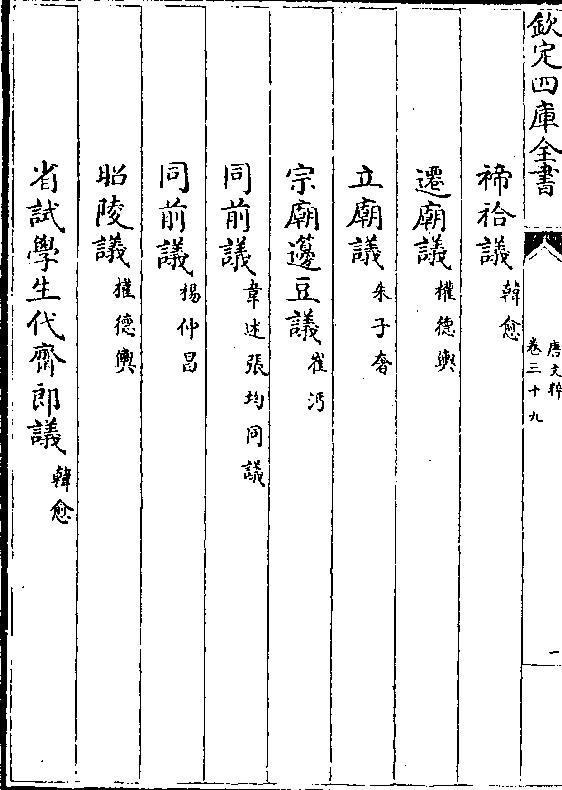 欽定四庫全書
唐文粹
卷三十九
一
禘祫議韓愈
遷廟議權德輿
立廟議朱子奢
宗廟籩豆議崔沔
同前議韋述張均同議
同前議楊仲昌
昭陵議權德輿
省試學生代齋郎議韓愈